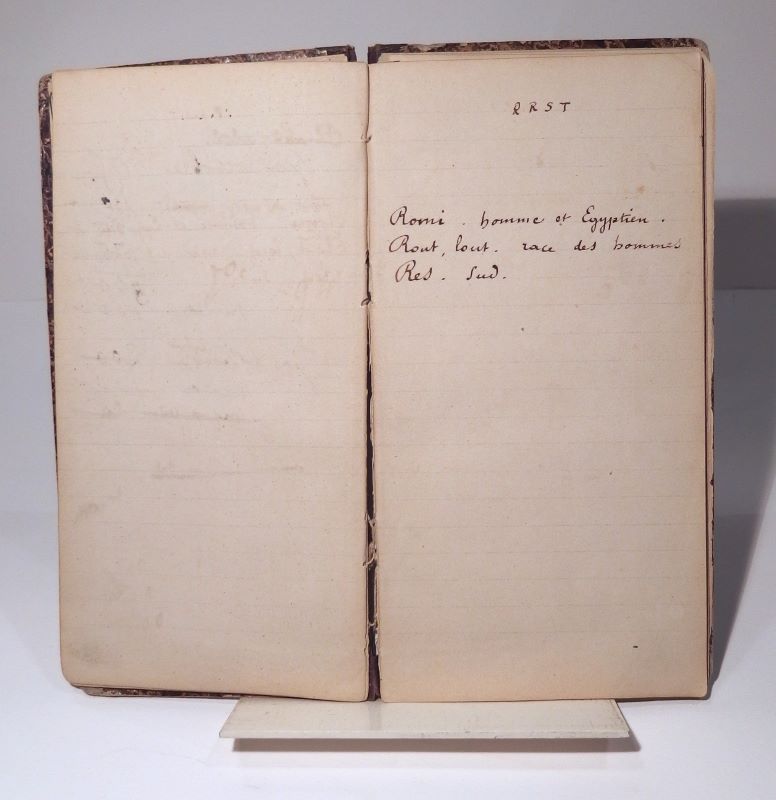 R R S T
Romi . homme et Egyptien .
Rout, lout . race des hommes
Res . Sud .